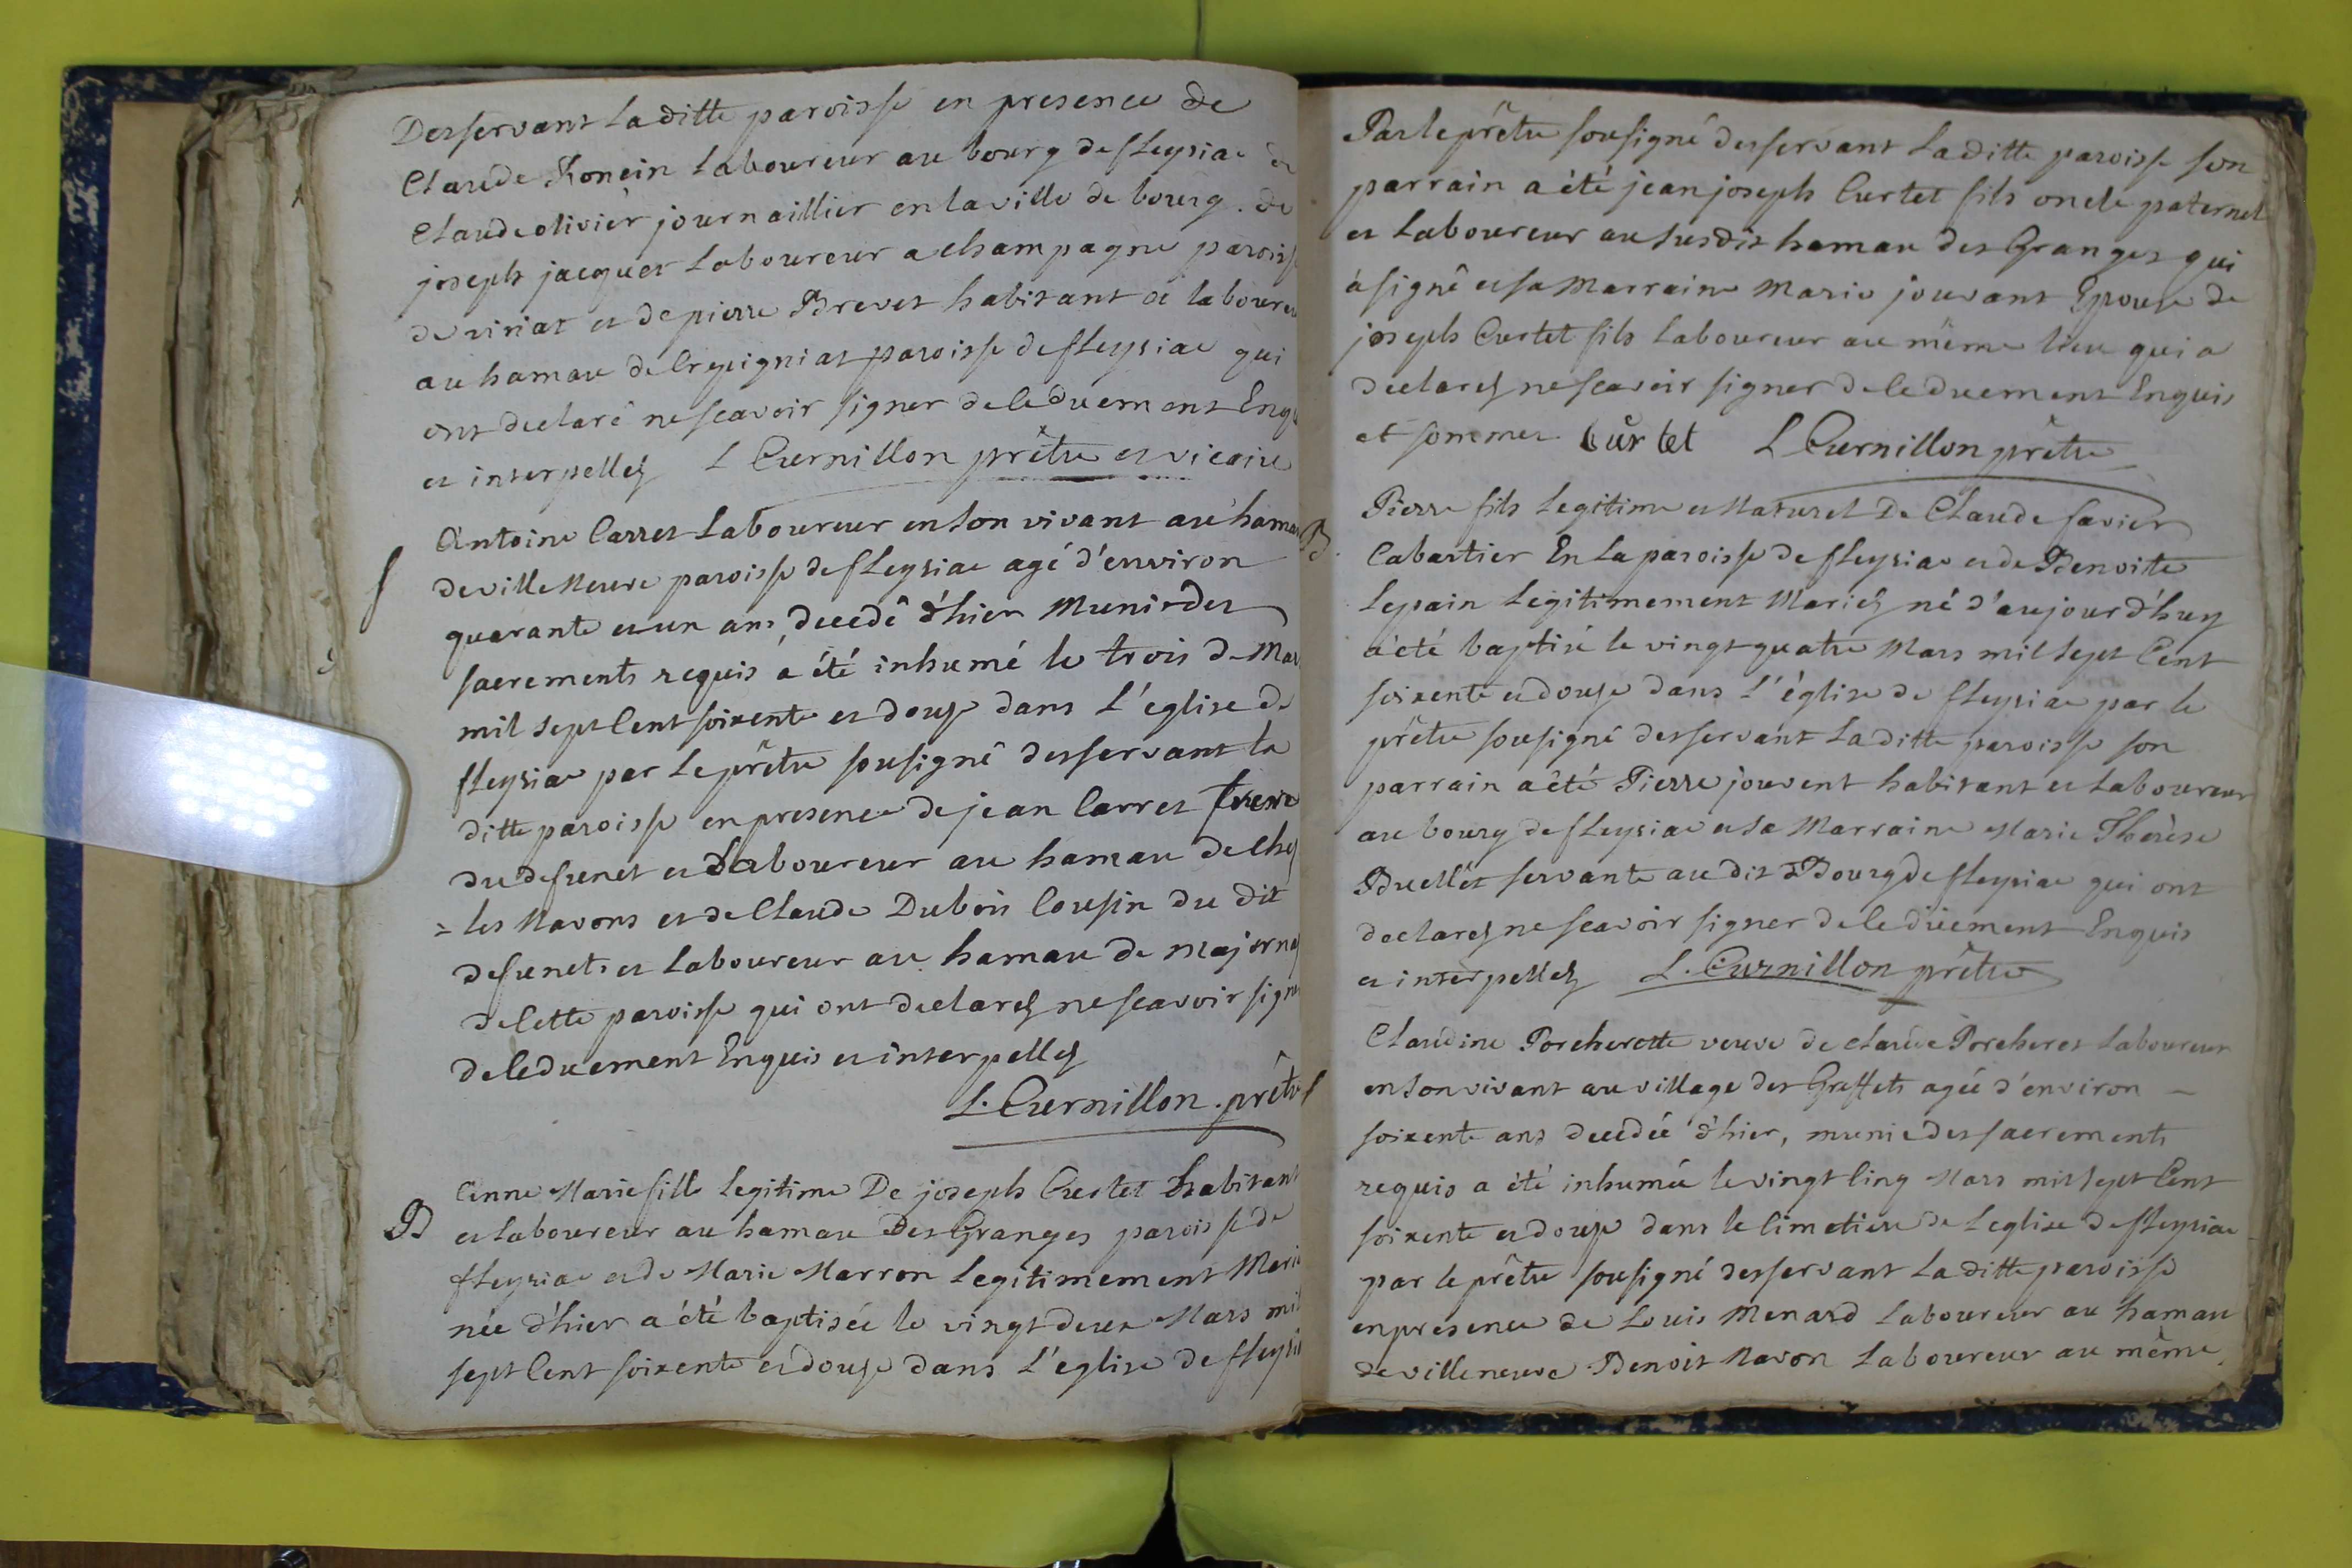 Desservant laditte paroisse en presence de
Claude Ronein laboureur au bourg de fleysiac de
Claude olivier journaillier en la ville de bourg . de
joseph jacquet laboureur a champagne paroisse
de viriat et de pierre Brevet habitant et laboureu
au hamau de Crepigniat paroisse de fleysiac qui
ont declaré ne scavoir signer de ce duement Enqu
et interpellez L Curnillon prêtre et vicaire
Antoine Carret Laboureur en son vivant au hamau
f
de ville Neuve paroisse de fleysiac agé d'environ
quarante et un ans, decedé d'hier Muni des
sacrements requis a été inhumé le trois de Mar
mil sept Cent soixente et douze dans l'église de
fleysiac par le prêtre sousigné desservant la
ditte paroisse en presence de jean Carret frere
du defunct et Laboureur au hamau de chez
= les Navons et de Claude Dubois Cousin du dit
defunct et laboureur au hamau de majorna
de Cette paroisse qui ont declarez ne scavoir sign
de ce duement Enquis et interpellez
L. Curnillon . prêtre
Anne Marie fille legitime De joseph Curtet habitant
B
et laboureur au hamau des Granges paroisse de
fleysiac et de Marie Marron legitimement Marie
née d'hier a été baptisée le vingt deux Mars mil
sept Cent soixente et douze dans l'église de fleysia
Par le prêtre sousigné desservant laditte paroisse son
parrain a été jean joseph Curtet fils oncle paternel
et laboureur au susdit hamau des Granges qui
a signé et sa Marraine Marie jouvant Epouse de
joseph Curtet fils laboureur au même lieu qui a
declarez ne scavoir signer de ce duement Enquis
et sommez Curtet L Curnillon prêtre
Pierre fils legitime et Naturel De Claude favier
B.
Cabartier En la paroisse de fleysiac et de Benoite
Lepain legitimement Mariez né d'aujourd'huy
a été baptisé le vingt quatre Mars mil sept Cent
soixente et douze dans l'église de fleysiac par le
prêtre sousigné desservant laditte paroisse son
parrain a été Pierre jouvent habitant et laboureur
au bourg de fleysiac et sa Marraine Marie Therèse
Bruellet servante au dit Bourg de fleysiac qui ont
declarez ne scavoir signer de ce düement Enquis
et interpellez L. Curnillon prêtre
Claudine Porcherette veuve de claude Porcheret laboureur
f
en son vivant au village des Greffets agée d'environ
soixente ans decedée d'hier, munie des sacrements
requis a été inhumée le vingt Cinq Mars mil sept Cent
soixente et douze dans le Cimetiere de l'eglise de fleysiac
par le prêtre sousigné desservant laditte paroisse
en presence de Louis Menard laboureur au hamau
de villeneuve Benoit Navon laboureur au même